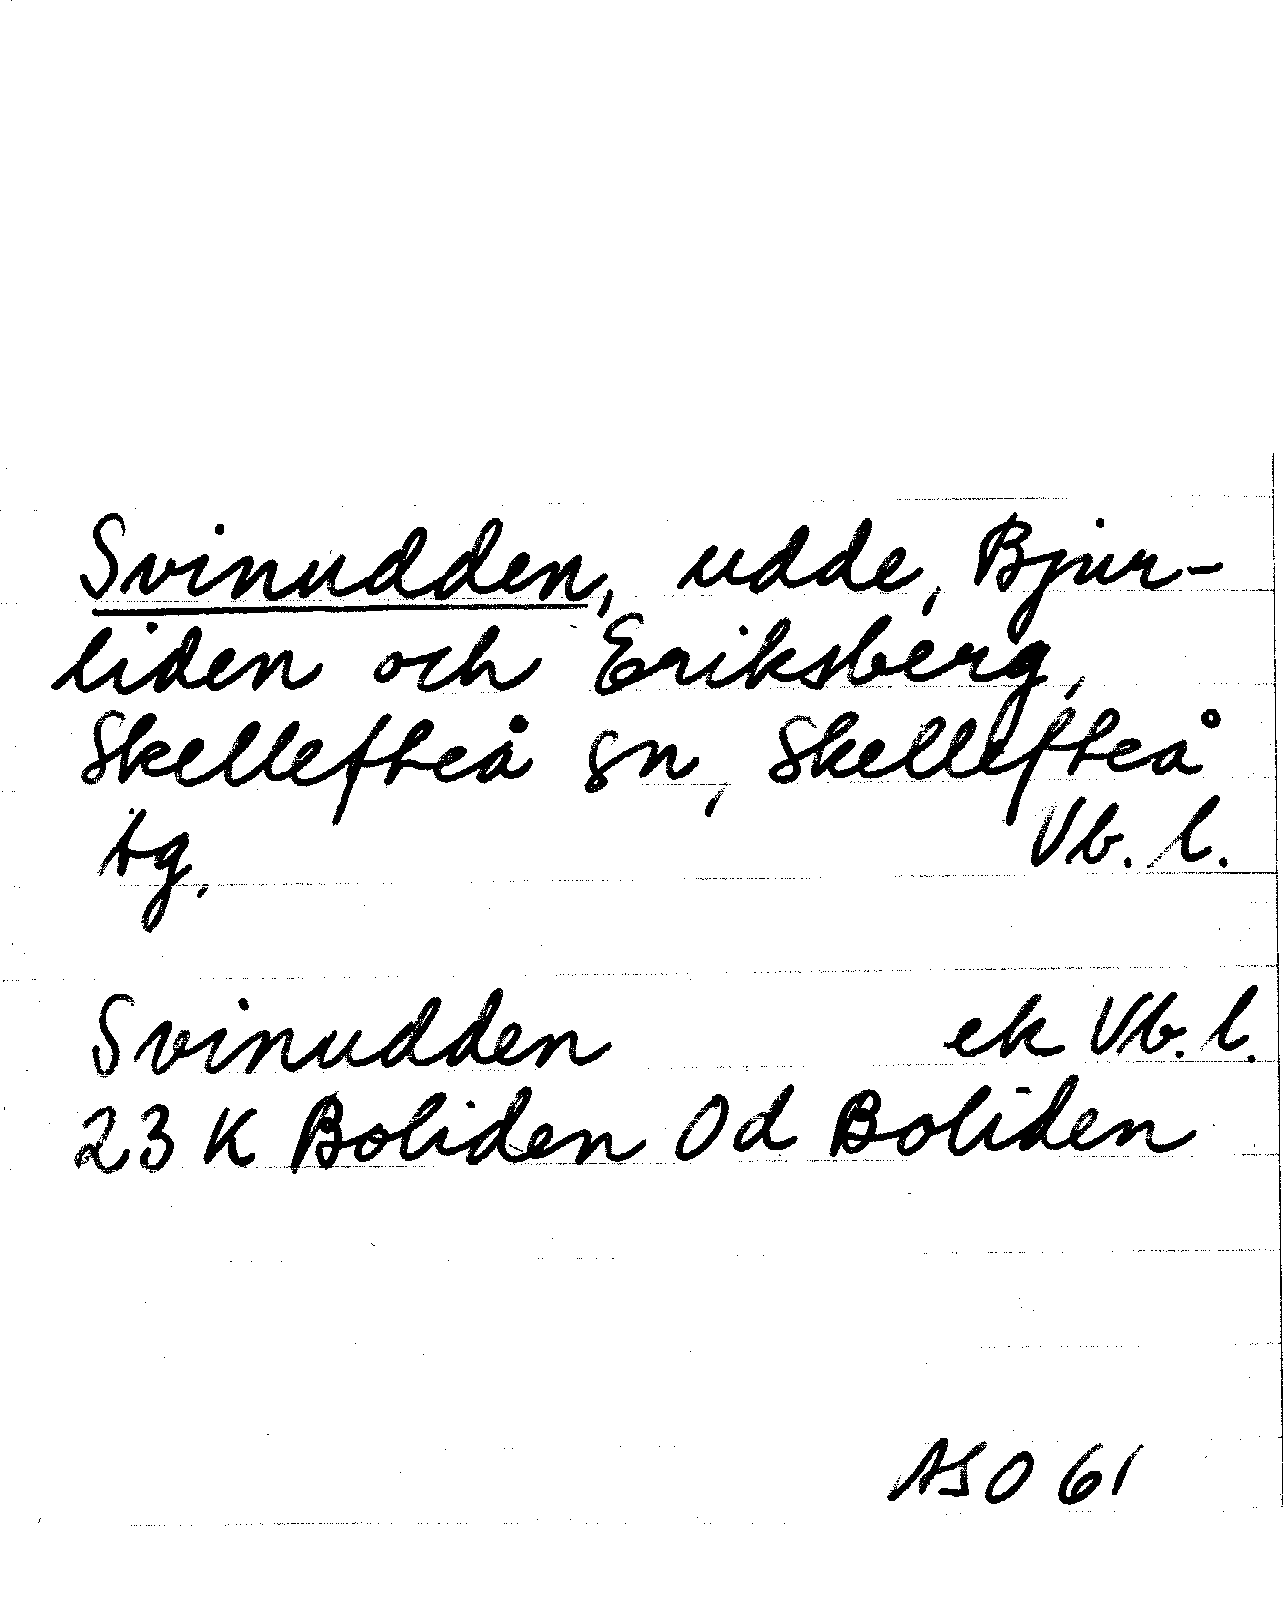 Svinudden, udde, Bjur-
liden och Eriksberg,
Skellefteå sn, Skellefteå
tg. Vb. l.
Svinudden ek Vb. l.
23 K Boliden Od Boliden
ASO 61